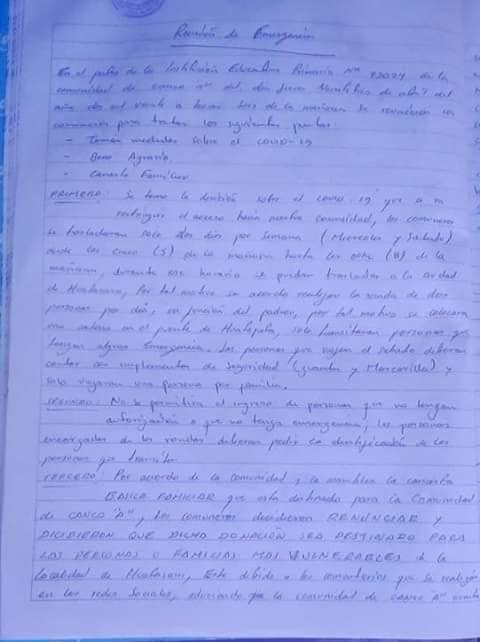 Reunión de Emergencia
En el patio de la Institución Educativa Primaria Nº de la
comunidad de Canco "A" del día Jueves de abril del
año dos mil veinte a horas de la mañana se reunieron los
comuneros para tratar los siguientes puntos:
- Tomar medidas sobre el COVID-19
- Bono Agrario.
- Canasta Familiar.
PRIMERO: Se tomo la decisión sobre el COVID 19 que a
restringir el acceso hacia nuestra comunidad, los comuneros
se trasladaran solo dos días por semana (Miercoles y Sabado)
desde las cinco (5) de la mañana hasta las ocho (8) de la
mañana, durante ese horario se podran trasladar a la ciudad
de Por tal motivo se acordo realizar la ronda de dos
personas por día, en función del padron, por tal motivo se colocara
una cadena en el puente de solo transitaran personas que
tengan alguna Emergencia. Las personas que viajen el sabado deberan
contar con implementos de seguridad (guantes y Mascarilla) y
solo viajaran una persona por familia.
SEGUNDO: No se permitira el ingreso de personas que no tengan
autorización o que no tenga emergencia, las personas
encargadas de las rondas deberan pedir la identificación de las
personas que transitan.
TERCERO: Por acuerdo de la comunidad y la asamblea la canasta
BASICA FAMILIAR que esta destinado para la Comunidad
de CANCO "A", Los comuneros decidieron RENUNCIAR Y
DICIDIERON QUE DICHA DONACIÓN SEA DESTINADO PARA
LAS PERSONAS O FAMILIAS MAS VULNERABLES de la
localidad de Este debido a los comentarios que se realizan
en las redes Sociales, que la comunidad de CANCO "A"